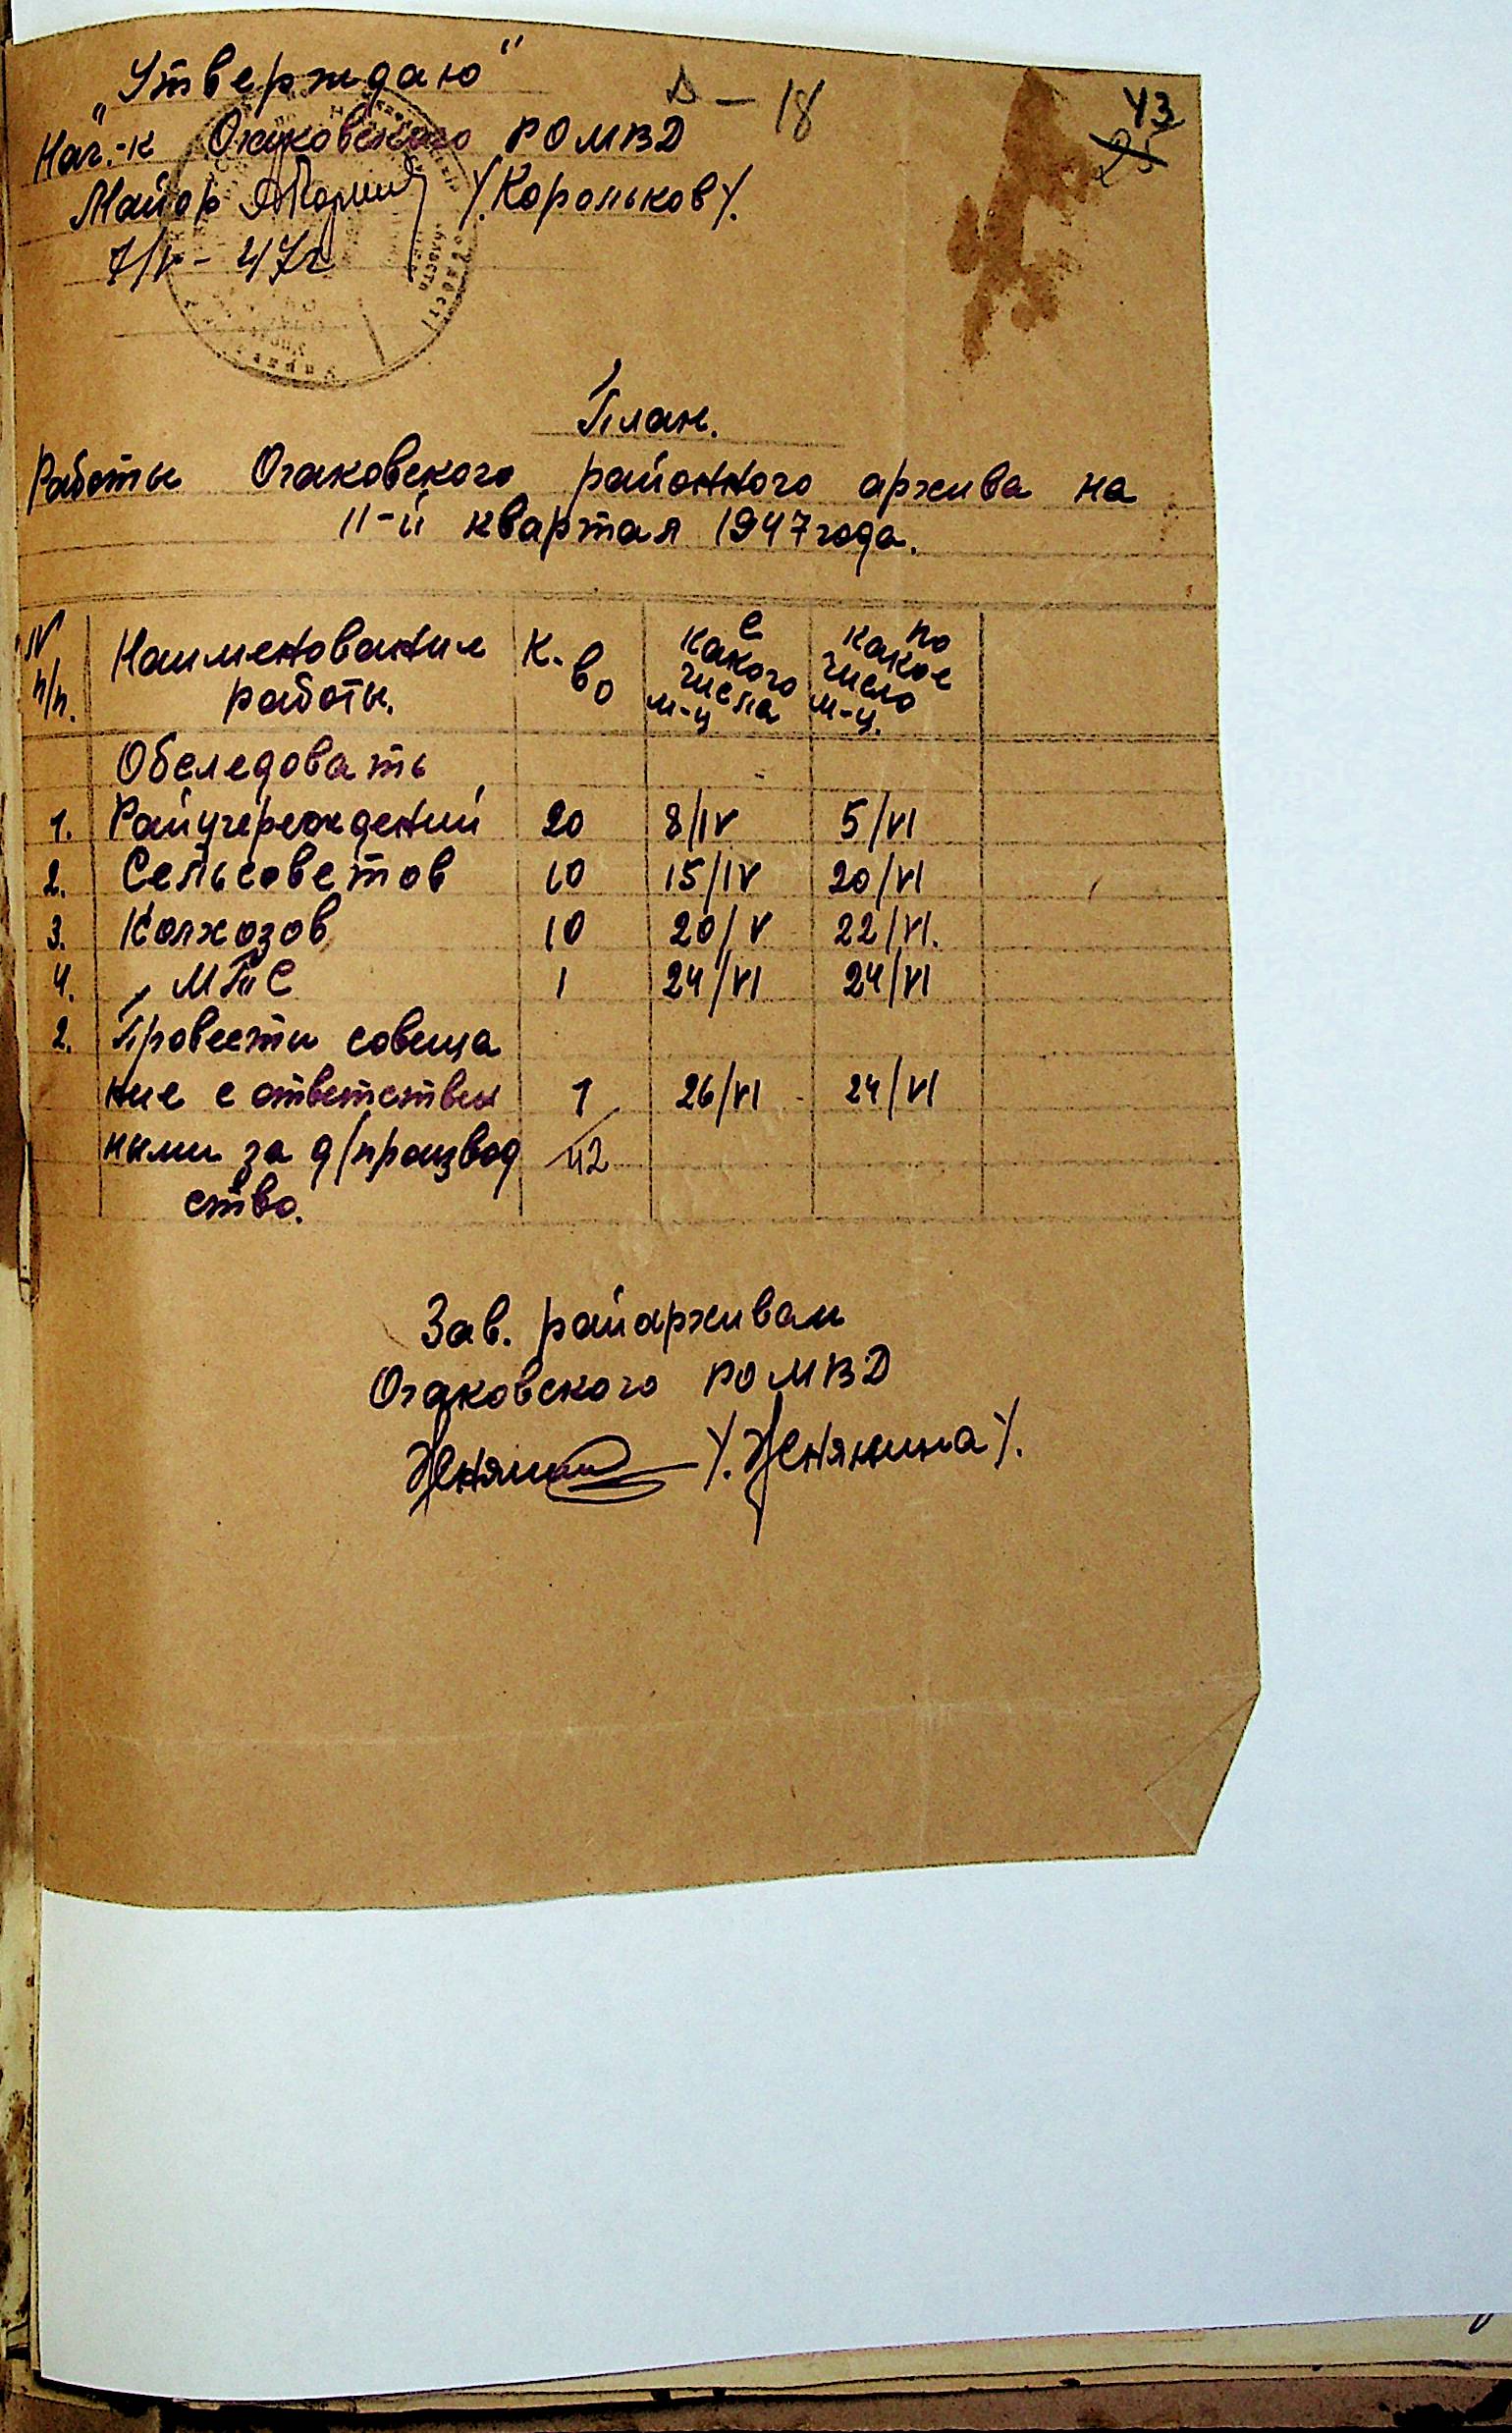 „Утверждаю"
Δ – 18
43
25
Нач.-к Очаковского РОМВД
Майор /.Корольков/.
– 47г
План.
Работы Очаковского районного архива на
II-й квартал 1947 года.
N п/п. Наименования работы. К.-во с какого числа м-ц по какое число м-ц.
Обследовать
1. Райучереждений 20 8/IV 5/VI
2. Сельсоветов 10 15/IV 20/VI
3. Колхозов 10 20/V 22/VI.
4. МТС 1 24/VI 24/VI
2. Провести совеща
ние с ответствен 1 26/VI 24/VI
ными за д/производ 42
ство.
Зав. райархивам
Очаковского РОМВД